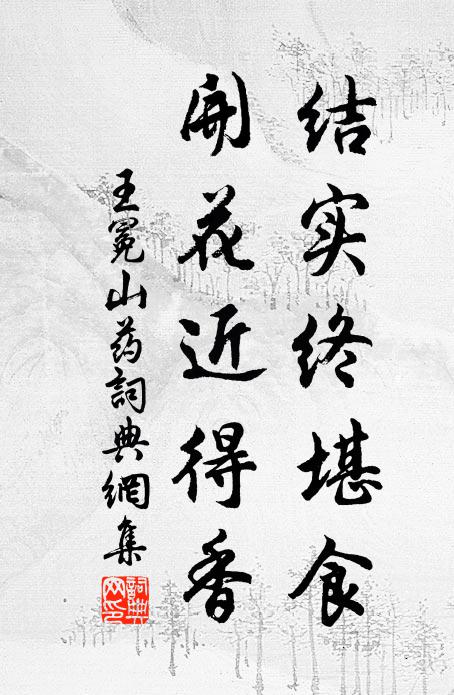 结实终堪食
開花近得香
王冕山药詞典網集
詞典网印